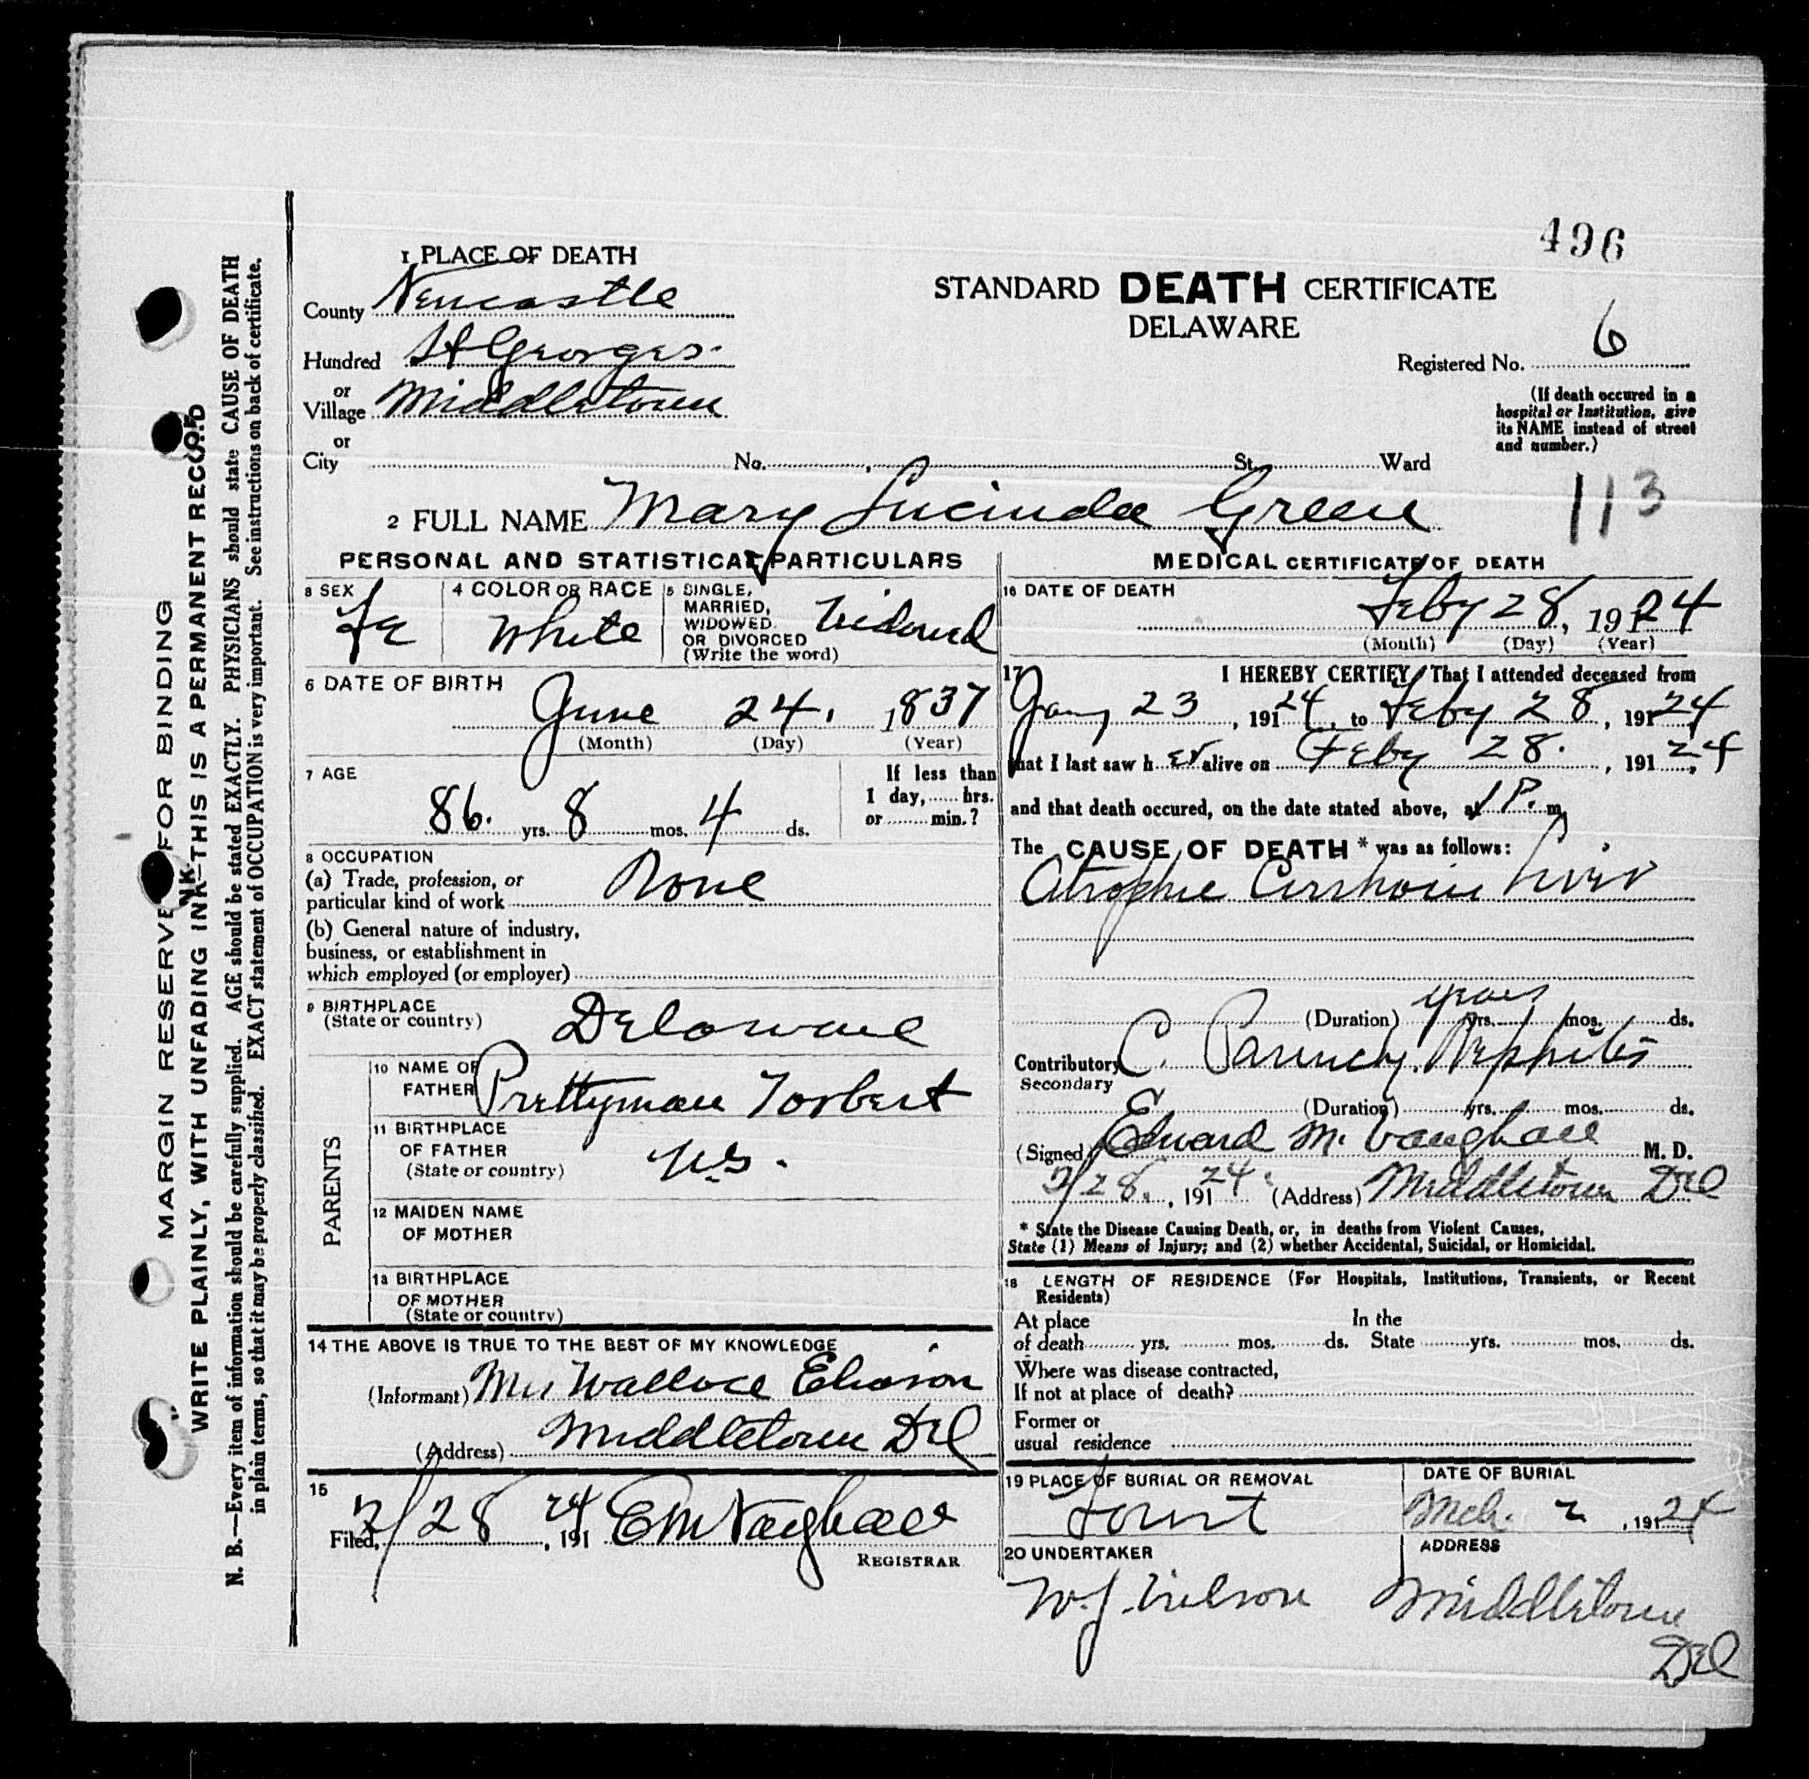 496
1 PLACE OF DEATH
County Newcastle
Hundred St Georges.
or
Village Middletown
or
City No. St. Ward
STANDARD DEATH CERTIFICATE
DELAWARE
Registered No. 6
(If death occured in a
hospital or Institution, give
its NAME instead of street
and number.)
113
2 FULL NAME Mary Lucinda Green
PERSONAL AND STATISTICAL PARTICULARS
3 SEX Fe
4 COLOR OR RACE White
5 SINGLE,
MARRIED,
WIDOWED
OR DIVORCED
(Write the word) Widowed
6 DATE OF BIRTH
June 24. 1837
(Month) (Day) (Year)
7 AGE
86. yrs. 8 mos. 4 ds.
If less than
1 day, hrs.
or min.?
8 OCCUPATION
(a) Trade, profession, or
particular kind of work None
(b) General nature of industry,
business, or establishment in
which employed (or employer)
9 BIRTHPLACE
(State or country) Delaware
PARENTS
10 NAME OF
FATHER Prettyman Torbert
11 BIRTHPLACE
OF FATHER
(State or country) U.S.
12 MAIDEN NAME
OF MOTHER
13 BIRTHPLACE
OF MOTHER
(State or country)
14 THE ABOVE IS TRUE TO THE BEST OF MY KNOWLEDGE
(Informant) Mrs Wallace Eliason
(Address) Middletown Del
15
Filed, 2/28, 191 24 E M Vaughan
REGISTRAR
MEDICAL CERTIFICATE OF DEATH
16 DATE OF DEATH
Feby 28, 1924
(Month) (Day) (Year)
17 I HEREBY CERTIFY, That I attended deceased from
Jany 23, 191 24, to Feby 28, 191 24
that I last saw h er alive on Feby 28., 191 24
and that death occured, on the date stated above, at 1 P. m.
The CAUSE OF DEATH * was as follows:
Atrophic Cirrhosis Liver
(Duration) years yrs. mos. ds.
Contributory C. Parenchy. Nephritis
Secondary
(Duration) yrs. mos. ds.
(Signed) Edward M. Vaughan M. D.
2/28., 191 24. (Address) Middletown Del
* State the Disease Causing Death, or, in deaths from Violent Causes,
State (1) Means of Injury; and (2) whether Accidental, Suicidal, or Homicidal.
18 LENGTH OF RESIDENCE (For Hospitals, Institutions, Transients, or Recent
Residents)
At place In the
of death yrs. mos. ds. State yrs. mos. ds.
Where was disease contracted,
If not at place of death?
Former or
usual residence
19 PLACE OF BURIAL OR REMOVAL
Forest
DATE OF BURIAL
Mch. 2, 191 24
20 UNDERTAKER
W. J. Wilson
ADDRESS
Middletown
Del
MARGIN RESERVED FOR BINDING
WRITE PLAINLY, WITH UNFADING INK—THIS IS A PERMANENT RECORD
N. B.—Every item of information should be carefully supplied. AGE should be stated EXACTLY. PHYSICIANS should state CAUSE OF DEATH
in plain terms, so that it may be properly classified. EXACT statement of OCCUPATION is very important. See instructions on back of certificate.